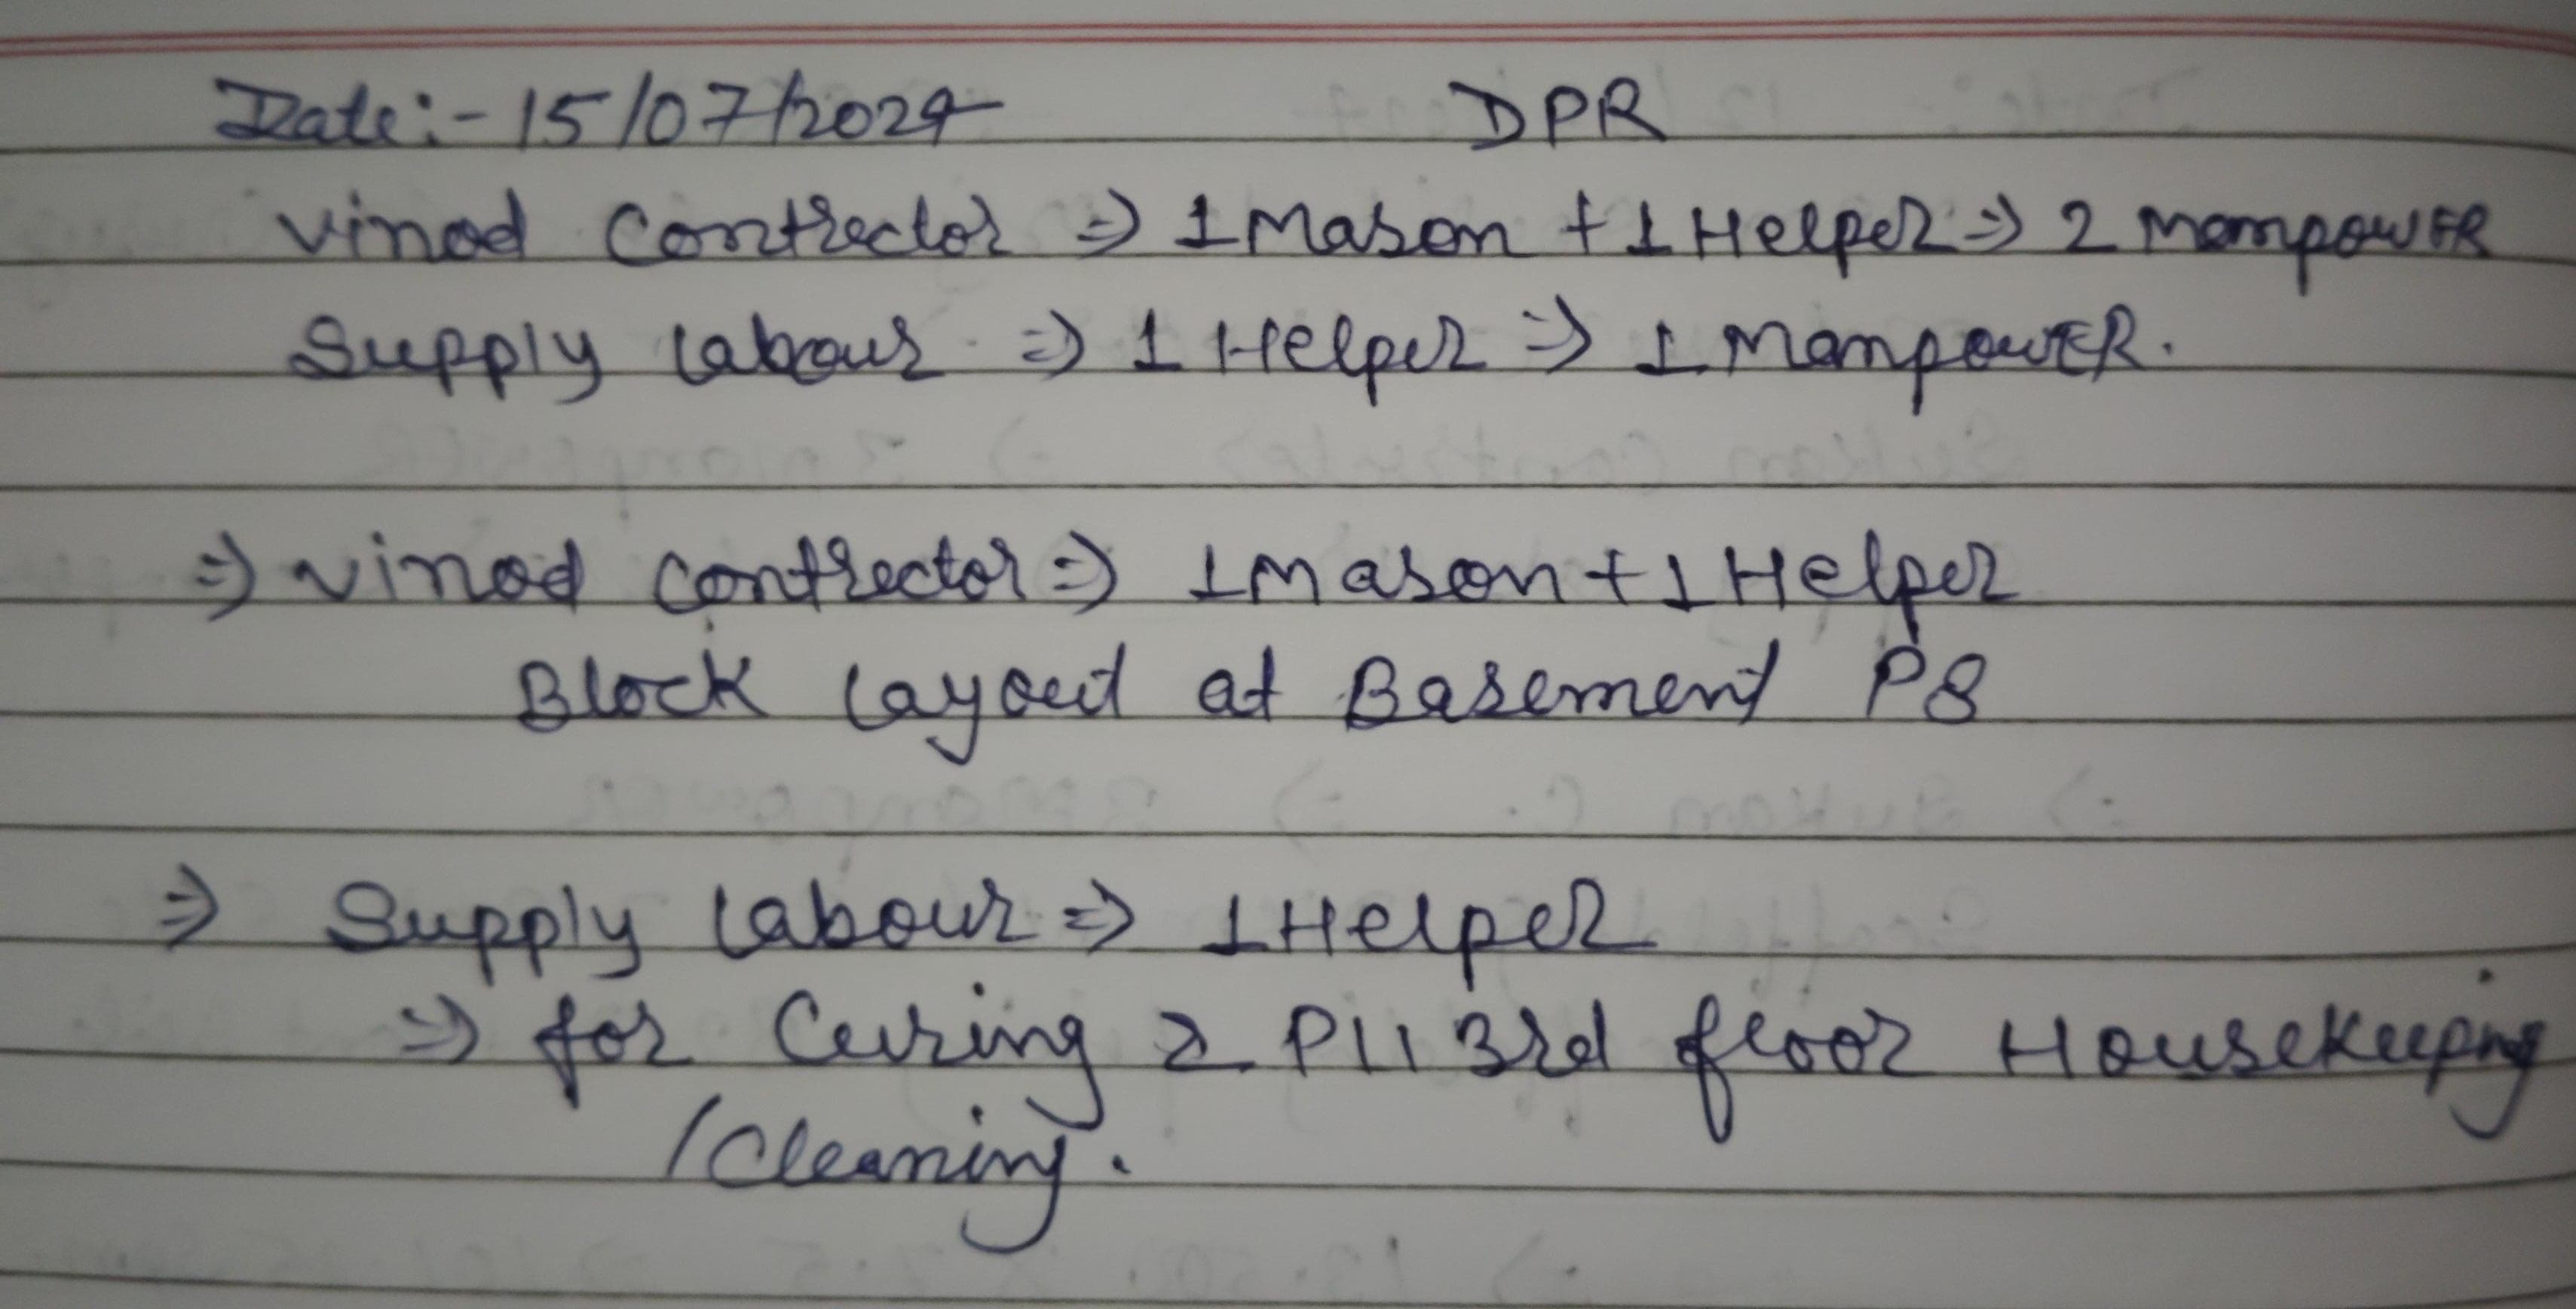 Date:- 15/07/2024 DPR
Vinod Contrector ⇒ 1 Mason + 1 Helper ⇒ 2 ManpowER
Supply Labour ⇒ 1 Helper ⇒ 1 ManpowER.
⇒ Vinod Contrector ⇒ 1 Mason + 1 Helper
Block Layout at Basement P8
⇒ Supply Labour ⇒ 1 Helper
⇒ for Curing & P11 3rd floor Housekeeping
/Cleaning.